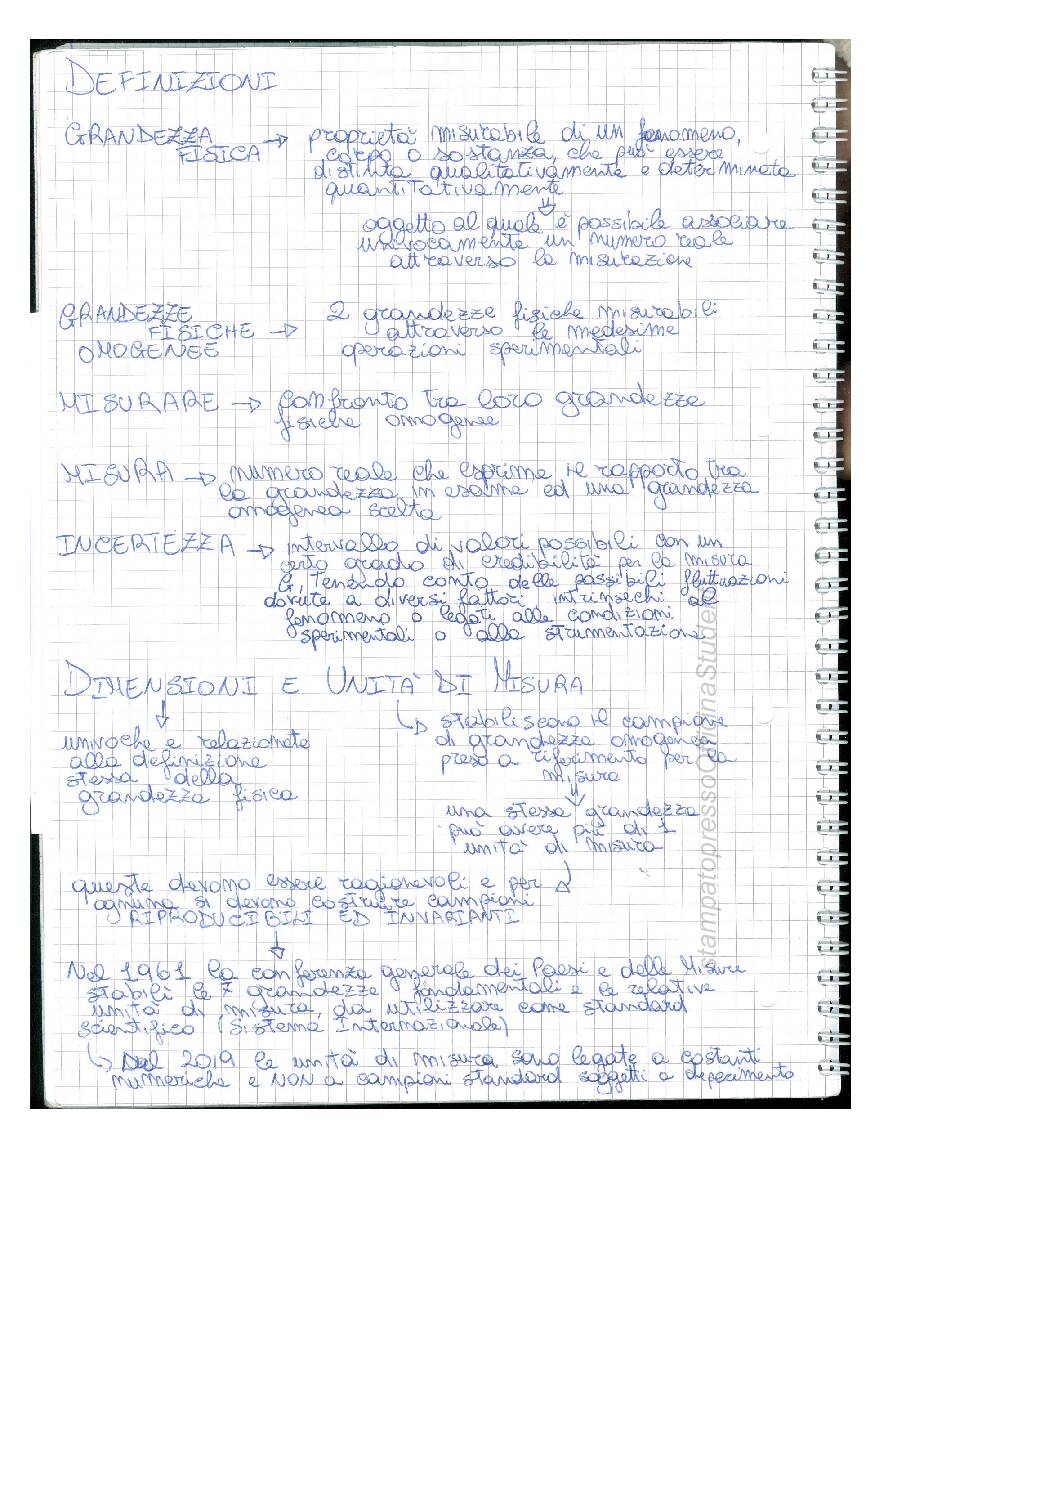 DEFINIZIONI
GRANDEZZA FISICA → proprietà misurabile di un fenomeno,
corpo o sostanza, che può essere
distinta qualitativamente e determinata
quantitativamente
⇓
oggetto al quale è possibile associare
univocamente un numero reale
attraverso la misurazione
GRANDEZZE FISICHE OMOGENEE → 2 grandezze fisiche misurabili
attraverso le medesime
operazioni sperimentali
MISURARE → confronto tra loro grandezze
fisiche omogenee
MISURA → numero reale che esprime il rapporto tra
la grandezza in esame ed una grandezza
omogenea scelta
INCERTEZZA → intervallo di valori possibili con un
certo grado di credibilità per la misura
G, tenendo conto delle possibili fluttuazioni
dovute a diversi fattori intrinsechi al
fenomeno o legati alle condizioni
sperimentali o alla strumentazione
DIMENSIONI E UNITÀ DI MISURA
↓
univoche e relazionate
alla definizione
stessa della
grandezza fisica
↳ stabiliscono il campione
di grandezza omogenea
preso a riferimento per la
misura
⇓
una stessa grandezza
può avere più di 1
unità di misura
queste devono essere ragionevoli e per
ognuna si devono costruire campioni
RIPRODUCIBILI ED INVARIANTI
↓
Nel 1961 la conferenza generale dei Paesi e delle Misure
stabilì le 7 grandezze fondamentali e le relative
unità di misura, da utilizzare come standard
scientifico (Sistema Internazionale)
↳ Dal 2019 le unità di misura sono legate a costanti
numeriche e NON a campioni standard soggetti a deperimento
stampatopressoOfficinaStudenti